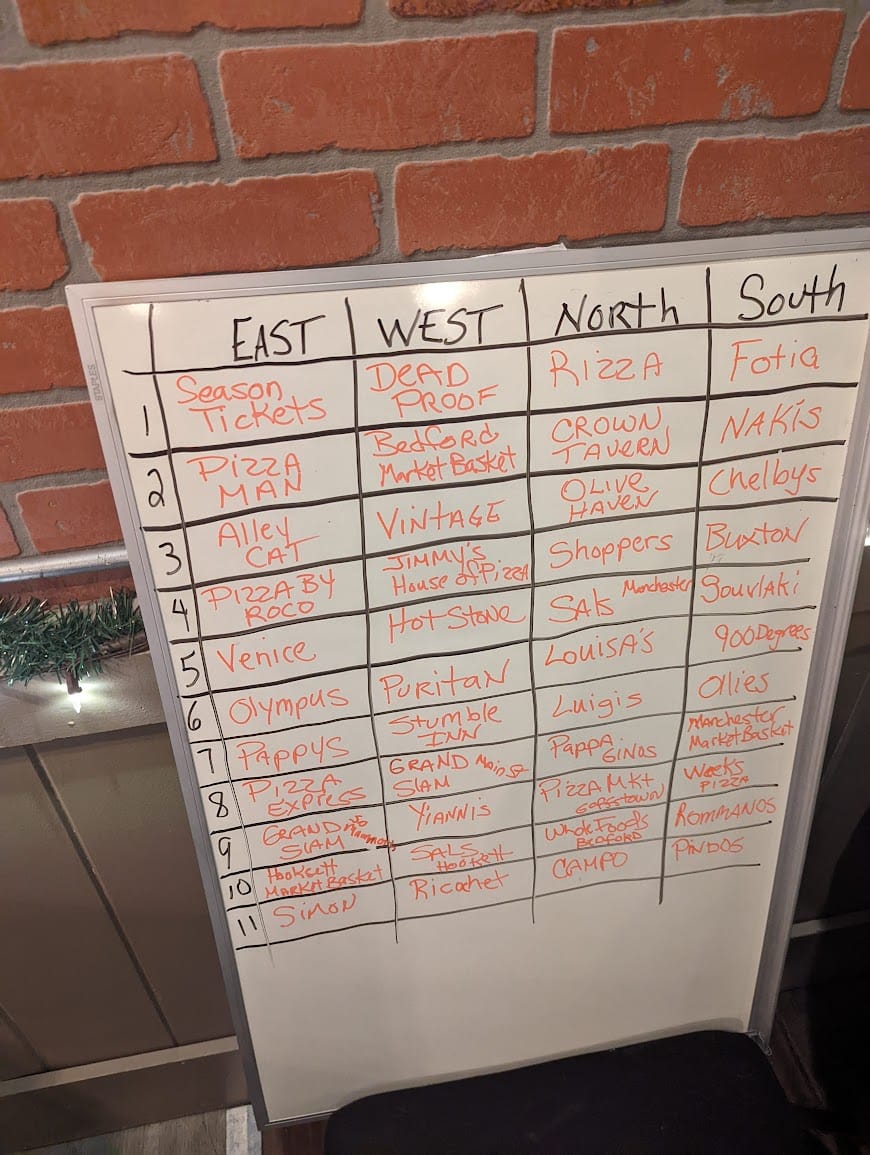 STAPLES
EAST
WEST
NORTH
South
1
Season
TICKETS
DEAD
PROOF
RIZZA
Fotia
2
PIZZA
MAN
BEDFORD
Market Basket
CROWN
TAVERN
NAKIS
3
Alley
CAT
VINTAGE
OLIVE
HAVEN
Chelbys
4
PIZZA BY
ROCO
JIMMY'S
House of PIZZA
Shoppers
BUXTON
5
Venice
Hot STONE
SALS Manchester
6
Olympus
PURITAN
LOUISA'S
900 Degrees
7
PAPPYS
Stumble
INN
Luigis
Ollies
8
PIZZA
EXPRESS
GRAND Main St
SLAM
PAPPA
GINOS
Manchester
Market Basket
9
GRAND
SLAM
YIANNIS
PIZZA MKT
GOFFSTOWN
Weeks
PIZZA
10
Hooksett
MARKET BASKET
SALS
Hooksett
Whole Foods
BEDFORD
ROMMANOS
11
SIMON
Ricochet
CAMPO
PINDOS